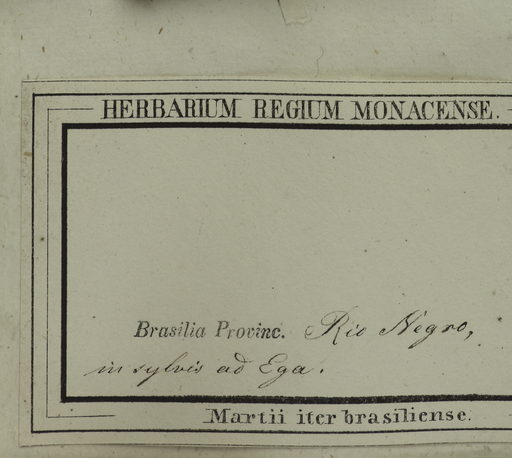 HERBARIUM REGIUM MONACENSE.
Brasilia Provinc. Rio Negro,
in sylvis ad Ega.
Martii iter brasiliense.